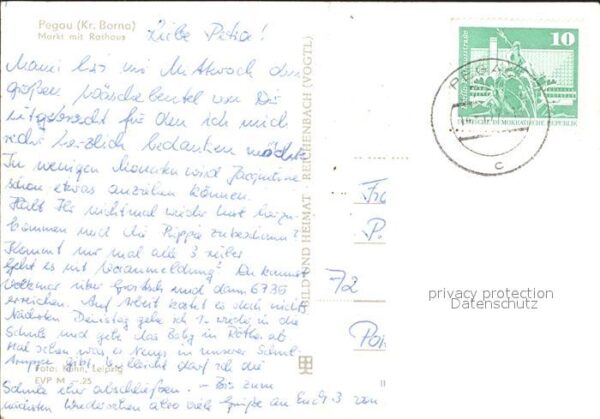 Pegau (Kr. Borna)
Markt mit Rathaus
Liebe Petra!
Mami hat mir Mittwoch den
großen Wäschebeutel von Dir
mitgebracht für den ich mich
recht herzlich bedanken möchte
In wenigen Monaten wird Jacqueline
schon etwas anziehen können.
Habt Ihr nicht mal wieder Lust herzu-
kommen und die Puppe zu bestaunen?
Kommt nur mal alle 3 rüber
Geht es mit Voranmeldung? Du kannst
Volkmar über Groitzsch und dann 6736
erreichen. Auf Arbeit kostet es doch nichts
Nächsten Dienstag gehe ich 1. wieder in die
Schule und gebe das Baby in Rötha ab
Mal sehen was es Neues in unserer Schul-
gruppe gibt. Vielleicht darf ich die
Schule eher abschließen. – Bis zum
nächsten Wiedersehen also viele Grüße an Euch 3 von
Foto: Kühn, Leipzig
EVP M –.25
BILD UND HEIMAT REICHENBACH (VOGTL)
72
10
DEUTSCHE DEMOKRATISCHE REPUBLIK
PEGAU
c
privacy protection
Datenschutz